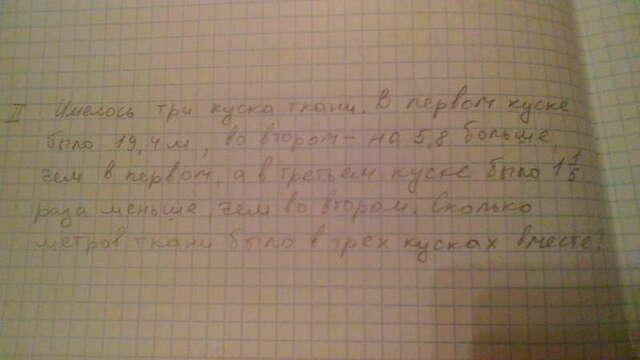 II Имелось три куска ткани. В первом куске
было 19,4 м, во втором - на 5,8 больше,
чем в первом, а в третьем куске было 1 1/5
раза меньше, чем во втором. Сколько
метров ткани было в трех кусках вместе?